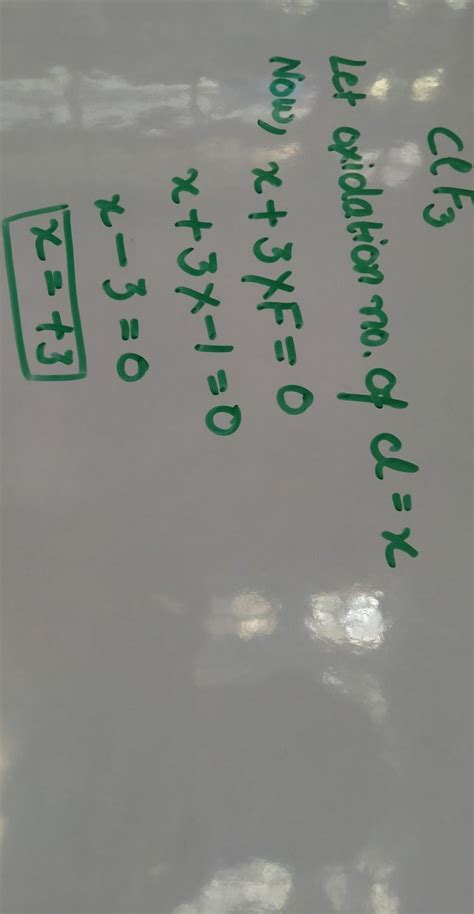 ClF3
Let oxidation no. of Cl = x
Now, x + 3 x F = 0
x + 3 x -1 = 0
x - 3 = 0
x = +3